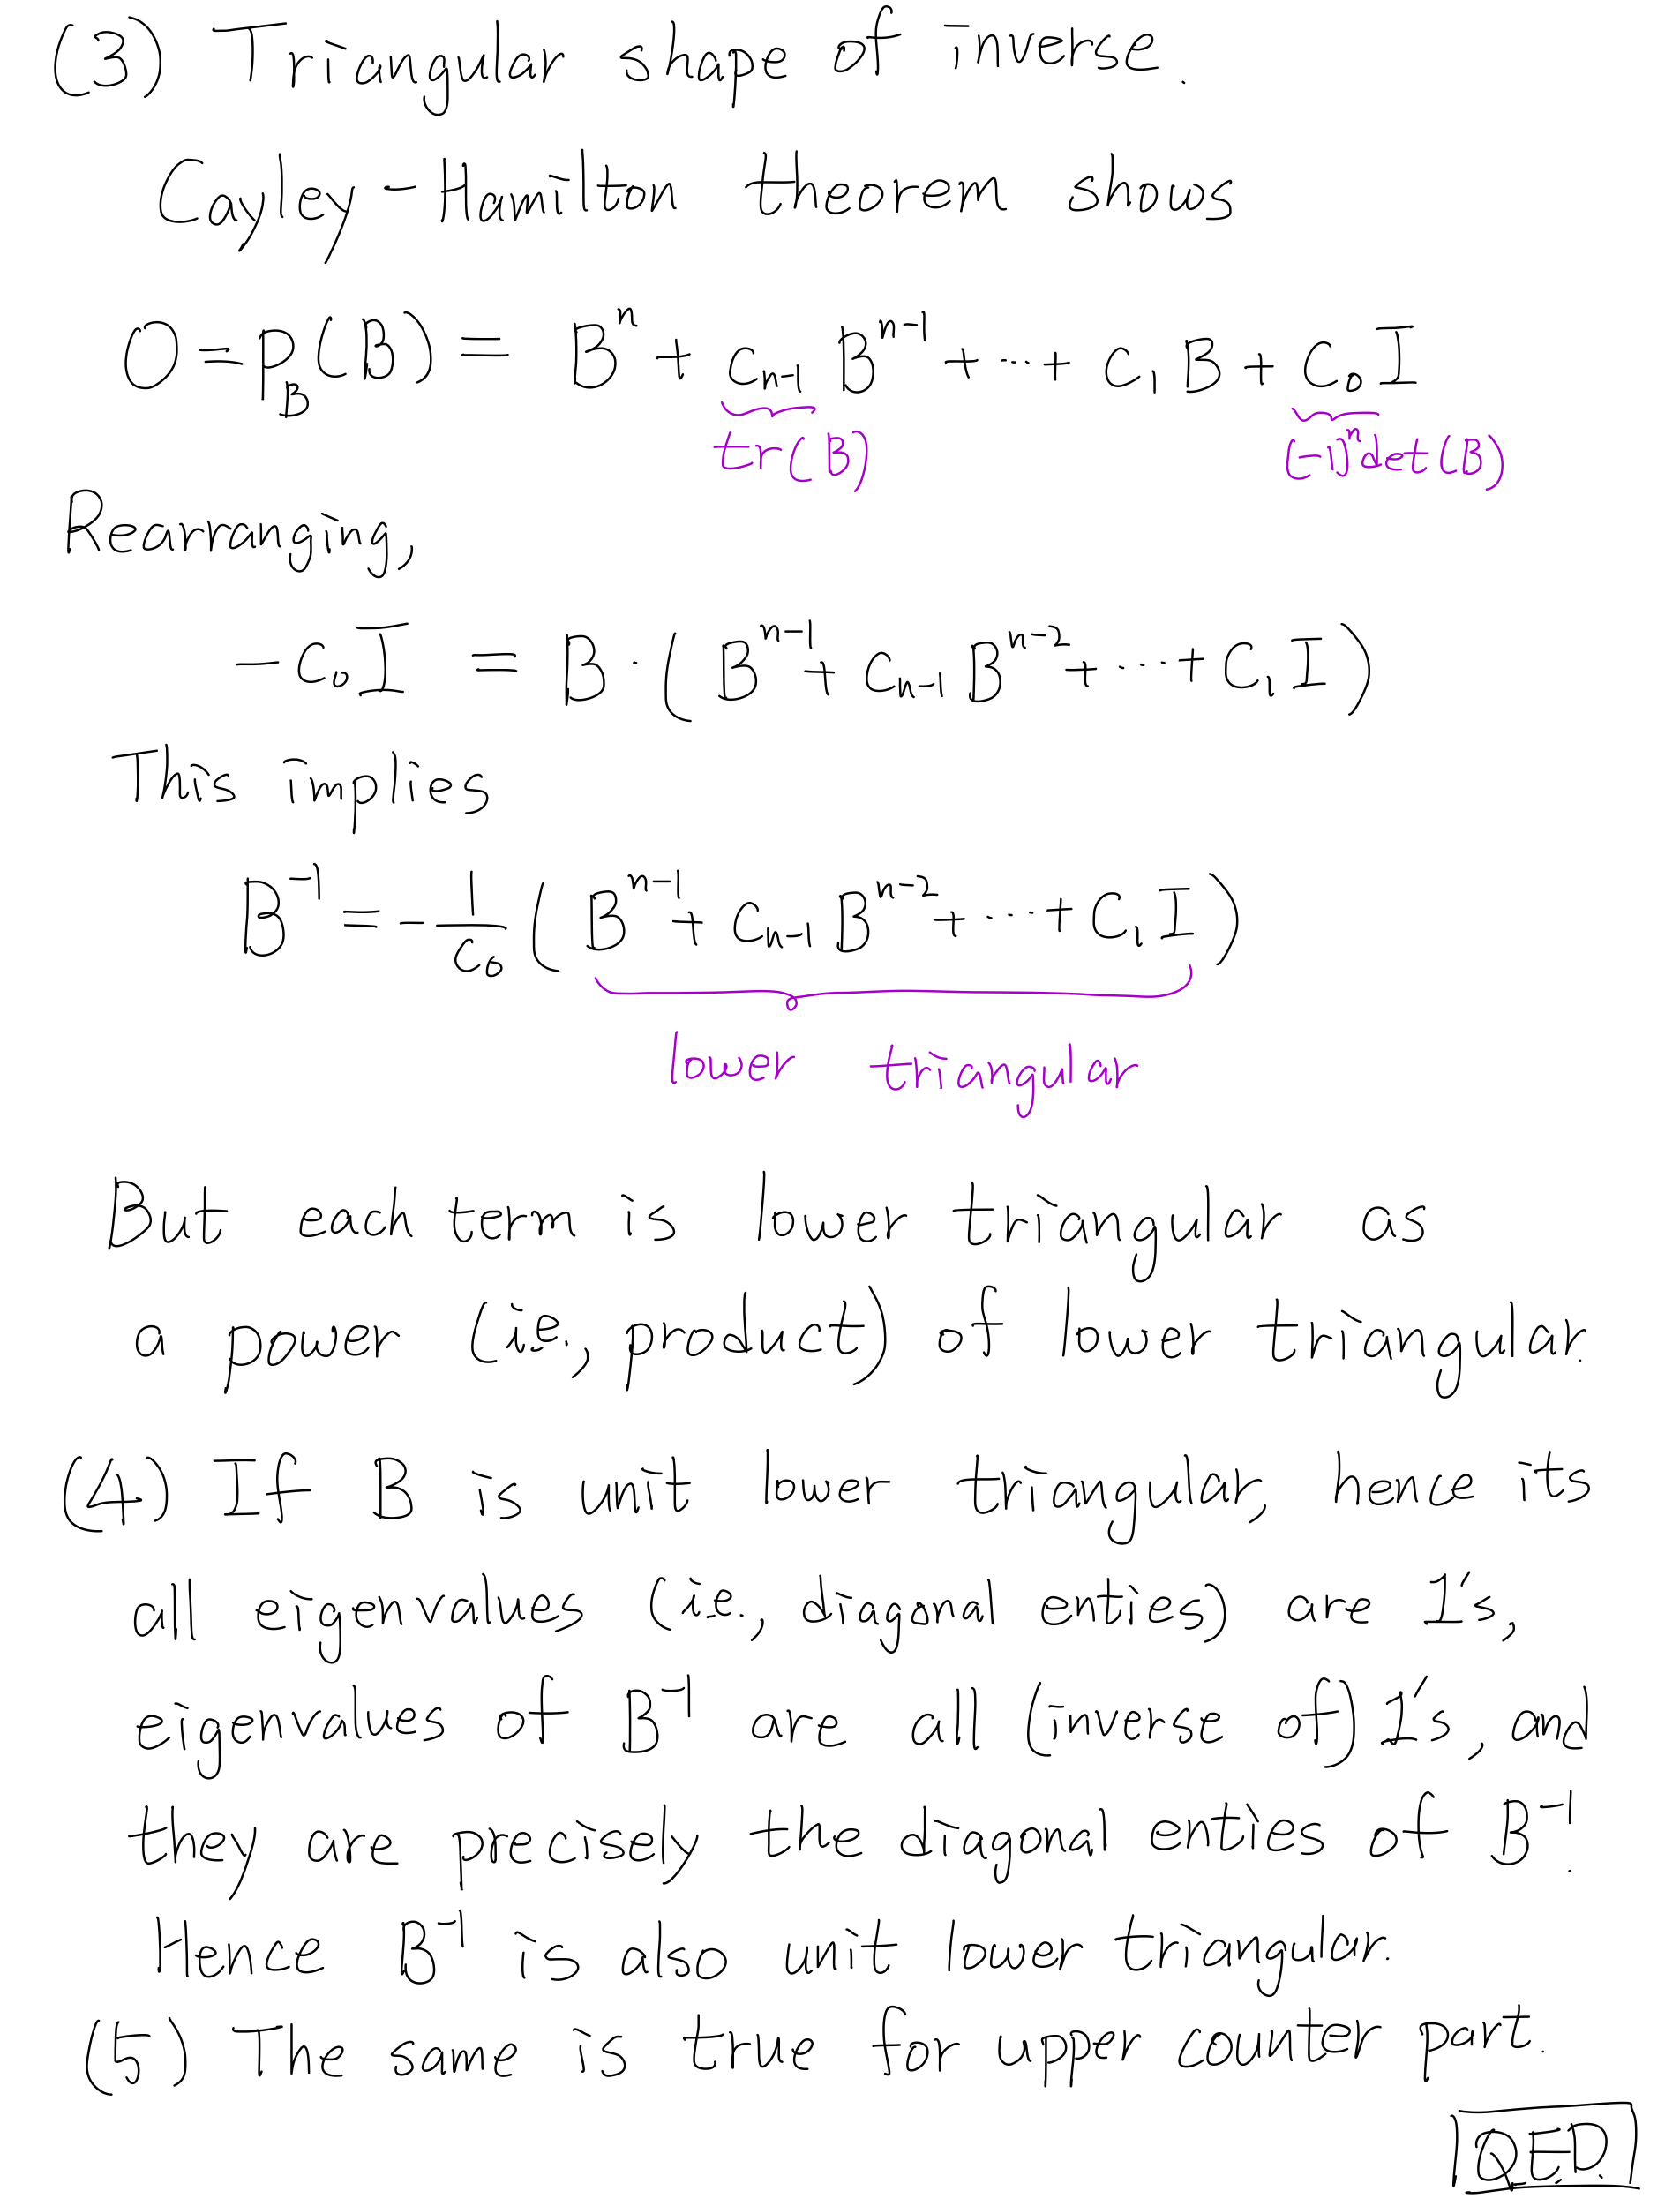 (3) Triangular shape of inverse.
Cayley-Hamilton theorem shows
O = p_B(B) = B^n + c_{n-1} B^{n-1} + ··· + c_1 B + c_0 I
tr(B) (-1)^n det(B)
Rearranging,
-c_0 I = B · ( B^{n-1} + c_{n-1} B^{n-2} + ··· + c_1 I )
This implies
B^{-1} = - 1/c_0 ( B^{n-1} + c_{n-1} B^{n-2} + ··· + c_1 I )
lower triangular
But each term is lower triangular as
a power (i.e., product) of lower triangular.
(4) If B is unit lower triangular, hence its
all eigenvalues (i.e., diagonal enties) are 1's,
eigenvalues of B^{-1} are all (inverse of) 1's, and
they are precisely the diagonal enties of B^{-1}.
Hence B^{-1} is also unit lower triangular.
(5) The same is true for upper counter part.
Q.E.D.